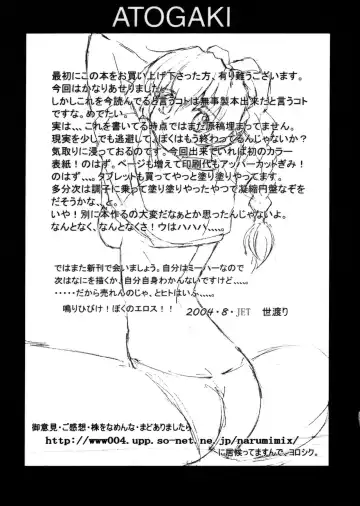 ATOGAKI
最初にこの本をお買い上げ下さった方、有り難うございます。
今回はかなりあせりました…
しかしこれを今読んでると言うコトは無事製本出来たと言うコト
ですな。めでたい。
実は、、、これを書いてる時点ではまだ原稿埋まってません。
現実から少しでも逃避して、ぼくはもう終わってるんじゃないか？
気取りに浸っておるのです、今回出来でいれば初のカラー
表紙！のはず。ページも増えて印刷代もアッパーカットぎみ！
のはず。、、、タブレットも買ってやっと塗り塗りやってます。
多分次は調子に乗って塗り塗りやったやつで凝縮円盤なぞを
だそうかな、、と。
いや！別に本作るの大変だなぁとか思ったんじゃないよ。
なんとなく、なんとなくさ！ウはハハハ、、、、。
ではまた新刊で会いましょう。自分はミーハーなので
次はなにを描くか、自分自身わかんないですけど、、、、。
・・・・・だから売れんのじゃ、とヒトはいふ、、、。
鳴りひびけ！ぼくのエロス！！
2004・8・JET 世渡り
御意見・ご感想・株をなめんな・まどありましたら
http://www004.upp.so-net.ne.jp/narumimix/
に居候ってますんで、ヨロシク。